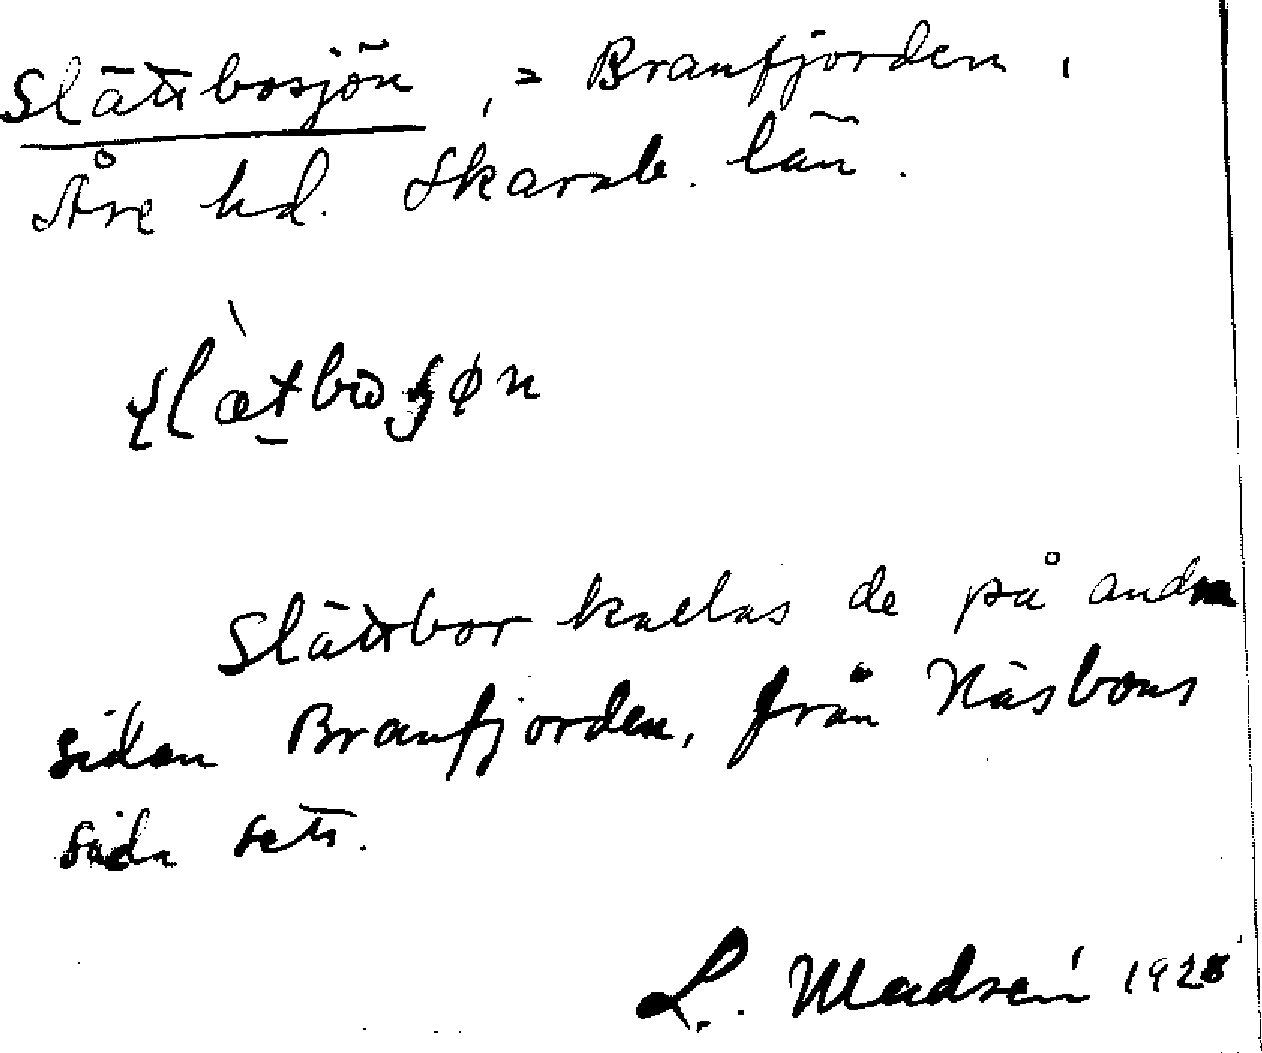 Slättbosjön, = Branfjorden,
Åse hd. Skarab. län.
slætbωʂøn
Slättbor kallas de på andra
sidan Branfjorden, från Näsbons
sida sett.
L. Madsén 1928